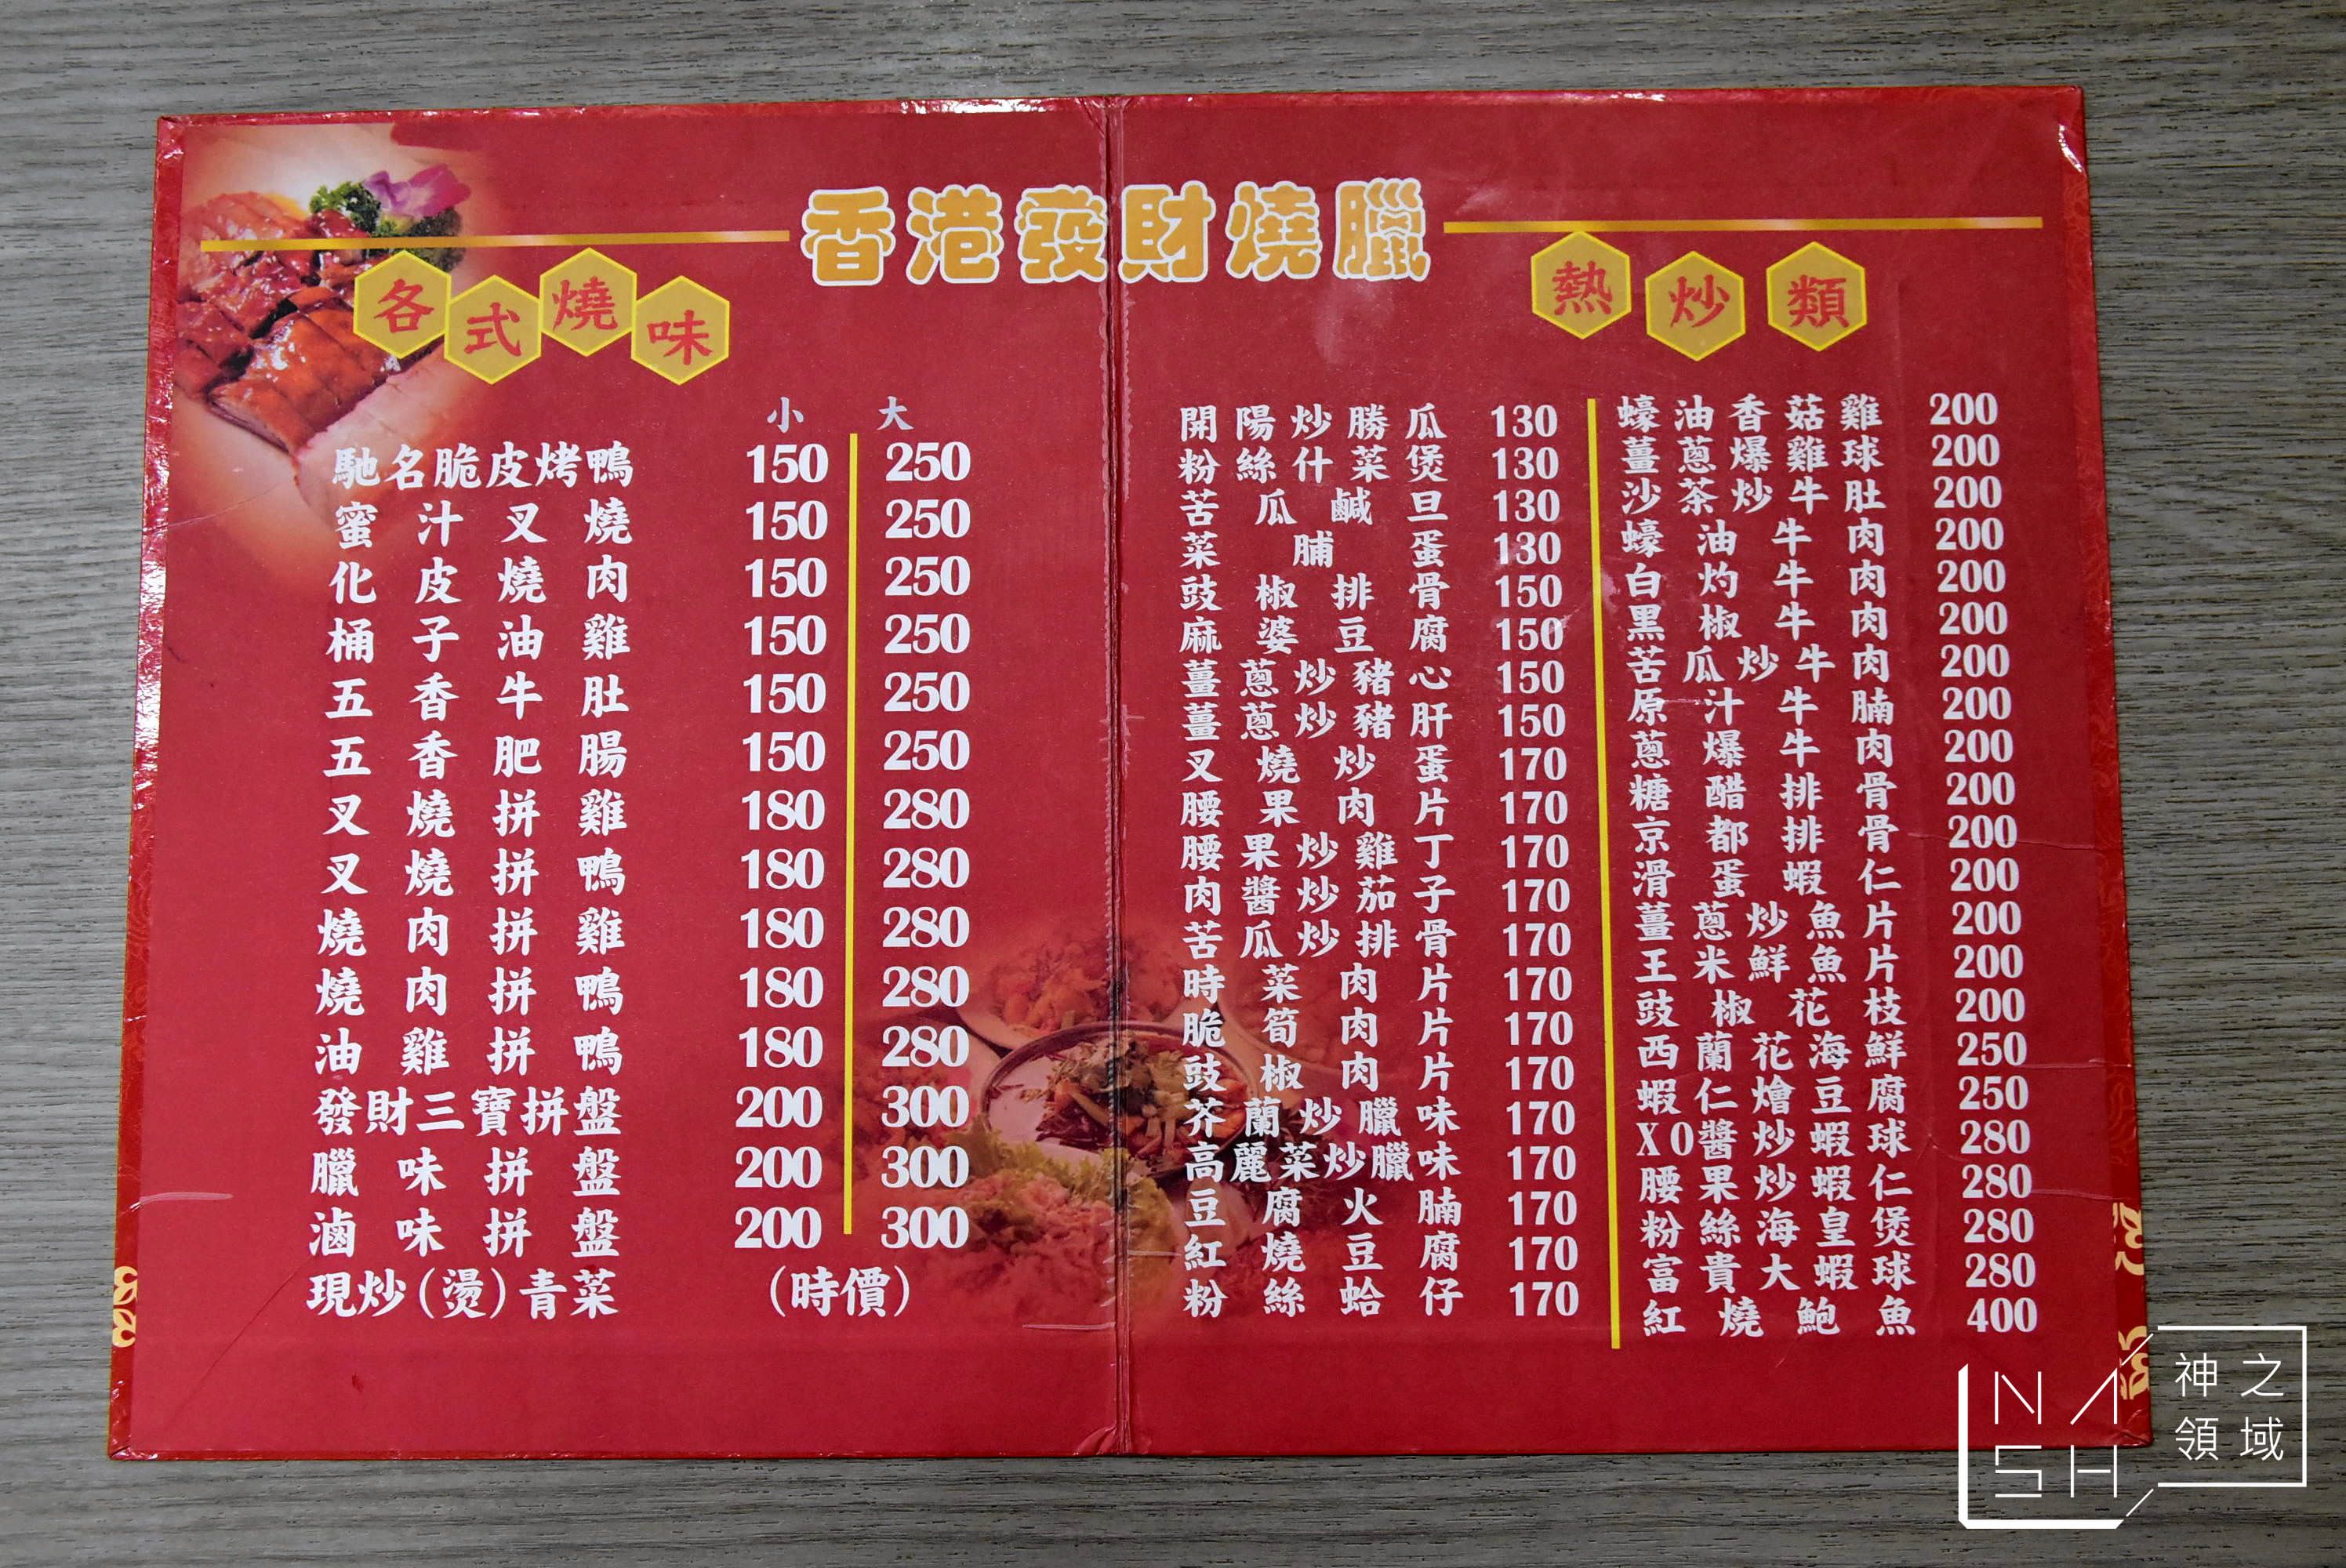 香港發財燒臘
各式燒味
小 大
馳名脆皮烤鴨 150 250
蜜汁叉燒 150 250
化皮燒肉 150 250
桶子油雞 150 250
五香牛肚 150 250
五香肥腸 150 250
叉燒拼雞 180 280
叉燒拼鴨 180 280
燒肉拼雞 180 280
燒肉拼鴨 180 280
油雞拼鴨 180 280
發財三寶拼盤 200 300
臘味拼盤 200 300
滷味拼盤 200 300
現炒(燙)青菜 (時價)
熱炒類
開陽炒勝瓜 130
粉絲什菜煲 130
苦瓜鹹旦 130
菜脯蛋 130
豉椒排骨 150
麻婆豆腐 150
薑蔥炒豬心 150
薑蔥炒豬肝 150
叉燒炒蛋 170
腰果肉片 170
腰果炒雞丁 170
肉醬炒茄子 170
苦瓜炒排骨 170
時菜肉片 170
脆筍肉片 170
豉椒肉片 170
芥蘭炒臘味 170
高麗菜炒臘味 170
豆腐火腩 170
紅燒豆腐 170
粉絲蛤仔 170
蠔油香菇雞 200
薑蔥爆雞球 200
沙茶炒牛肚 200
蠔油牛肉 200
白灼牛肉 200
黑椒牛肉 200
苦瓜炒牛肉 200
原汁牛腩 200
蔥爆牛肉 200
糖醋排骨 200
京都排骨 200
滑蛋蝦仁 200
薑蔥炒魚片 200
玉米鮮魚片 200
豉椒花枝 200
西蘭花海鮮 250
蝦仁燴豆腐 250
XO醬炒蝦球 280
腰果炒蝦仁 280
粉絲海皇煲 280
富貴大蝦球 280
紅燒鮑魚 400
NASH
神之領域